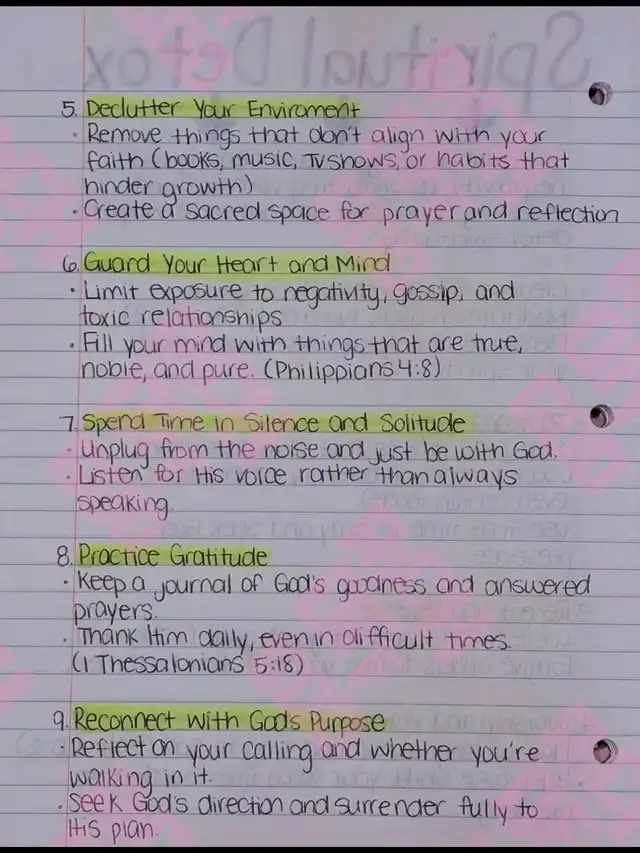 Spiritual Detox
5. Declutter Your Enviroment
· Remove things that don't align with your
faith (books, music, TV shows, or habits that
hinder growth)
· Create a sacred space for prayer and reflection
6. Guard Your Heart and Mind
· Limit exposure to negativity, gossip, and
toxic relationships
· Fill your mind with things that are true,
noble, and pure. (Philippians 4:8)
7. Spend Time in Silence and Solitude
· Unplug from the noise and just be with God.
· Listen for His voice rather than always
speaking.
8. Practice Gratitude
· Keep a journal of God's goodness and answered
prayers.
· Thank Him daily, even in difficult times.
(1 Thessalonians 5:18)
9. Reconnect with God's Purpose
· Reflect on your calling and whether you're
walking in it.
· Seek God's direction and surrender fully to
His plan.